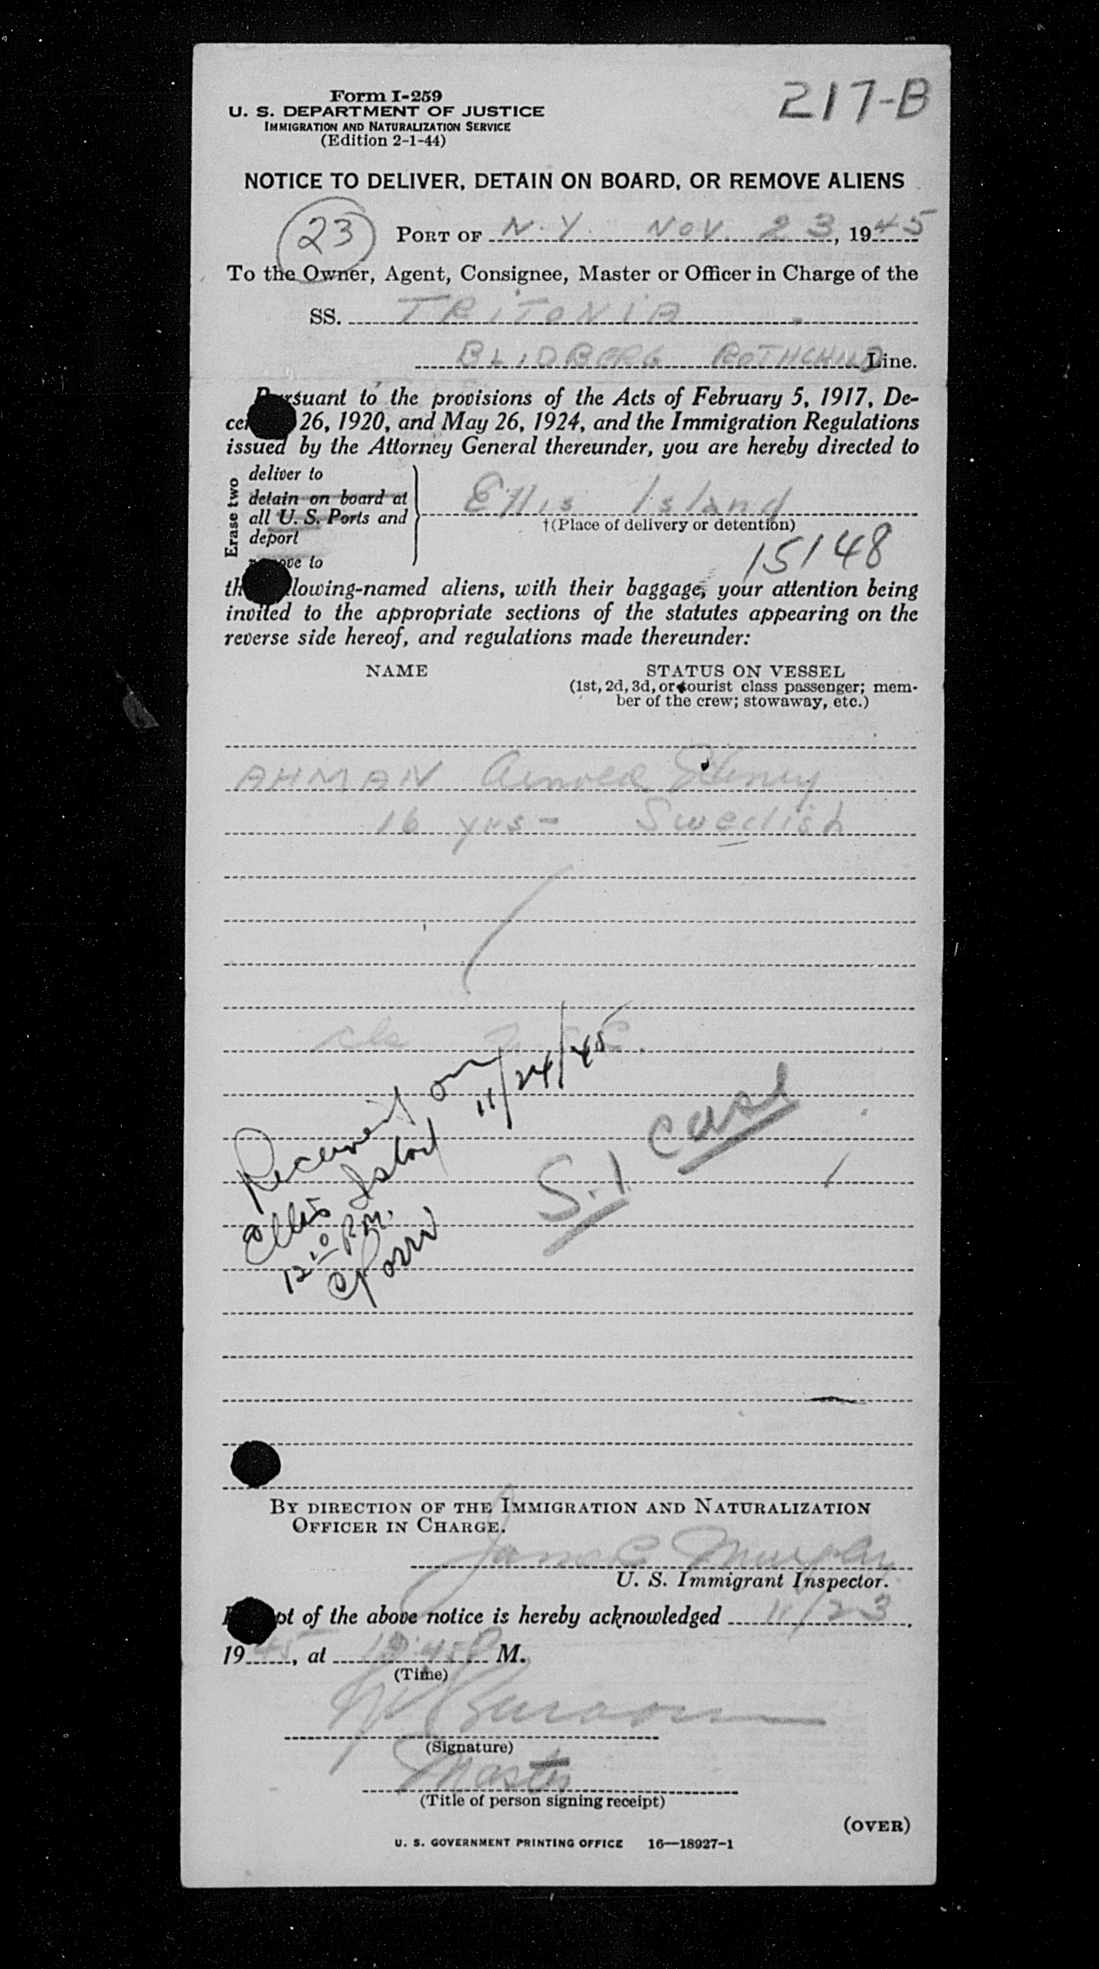 Form I-259
U. S. DEPARTMENT OF JUSTICE
IMMIGRATION AND NATURALIZATION SERVICE
(Edition 2-1-44)
217-B
NOTICE TO DELIVER, DETAIN ON BOARD, OR REMOVE ALIENS
23
PORT OF N.Y. NOV. 23, 1945
To the Owner, Agent, Consignee, Master or Officer in Charge of the
SS. TRITONIA
BLIDBERG ROTHCHILD Line.
Pursuant to the provisions of the Acts of February 5, 1917, De-
26, 1920, and May 26, 1924, and the Immigration Regulations
issued by the Attorney General thereunder, you are hereby directed to
Erase two
deliver to
detain on board at
all U. S. Ports and
deport
remove to
Ellis Island
†(Place of delivery or detention)
15148
the following-named aliens, with their baggage, your attention being
invited to the appropriate sections of the statutes appearing on the
reverse side hereof, and regulations made thereunder:
NAME
STATUS ON VESSEL
(1st, 2d, 3d, or tourist class passenger; mem-
ber of the crew; stowaway, etc.)
AHMAN Arnold
16 yrs - Swedish
Received on 11/24/45
Ellis Island
12:10 P.M.
S.I case
BY DIRECTION OF THE IMMIGRATION AND NATURALIZATION
OFFICER IN CHARGE.
James C Murphy
U. S. Immigrant Inspector.
Receipt of the above notice is hereby acknowledged 11/23,
1945, at M.
(Time)
(Signature)
Master
(Title of person signing receipt)
(OVER)
U. S. GOVERNMENT PRINTING OFFICE 16—18927-1